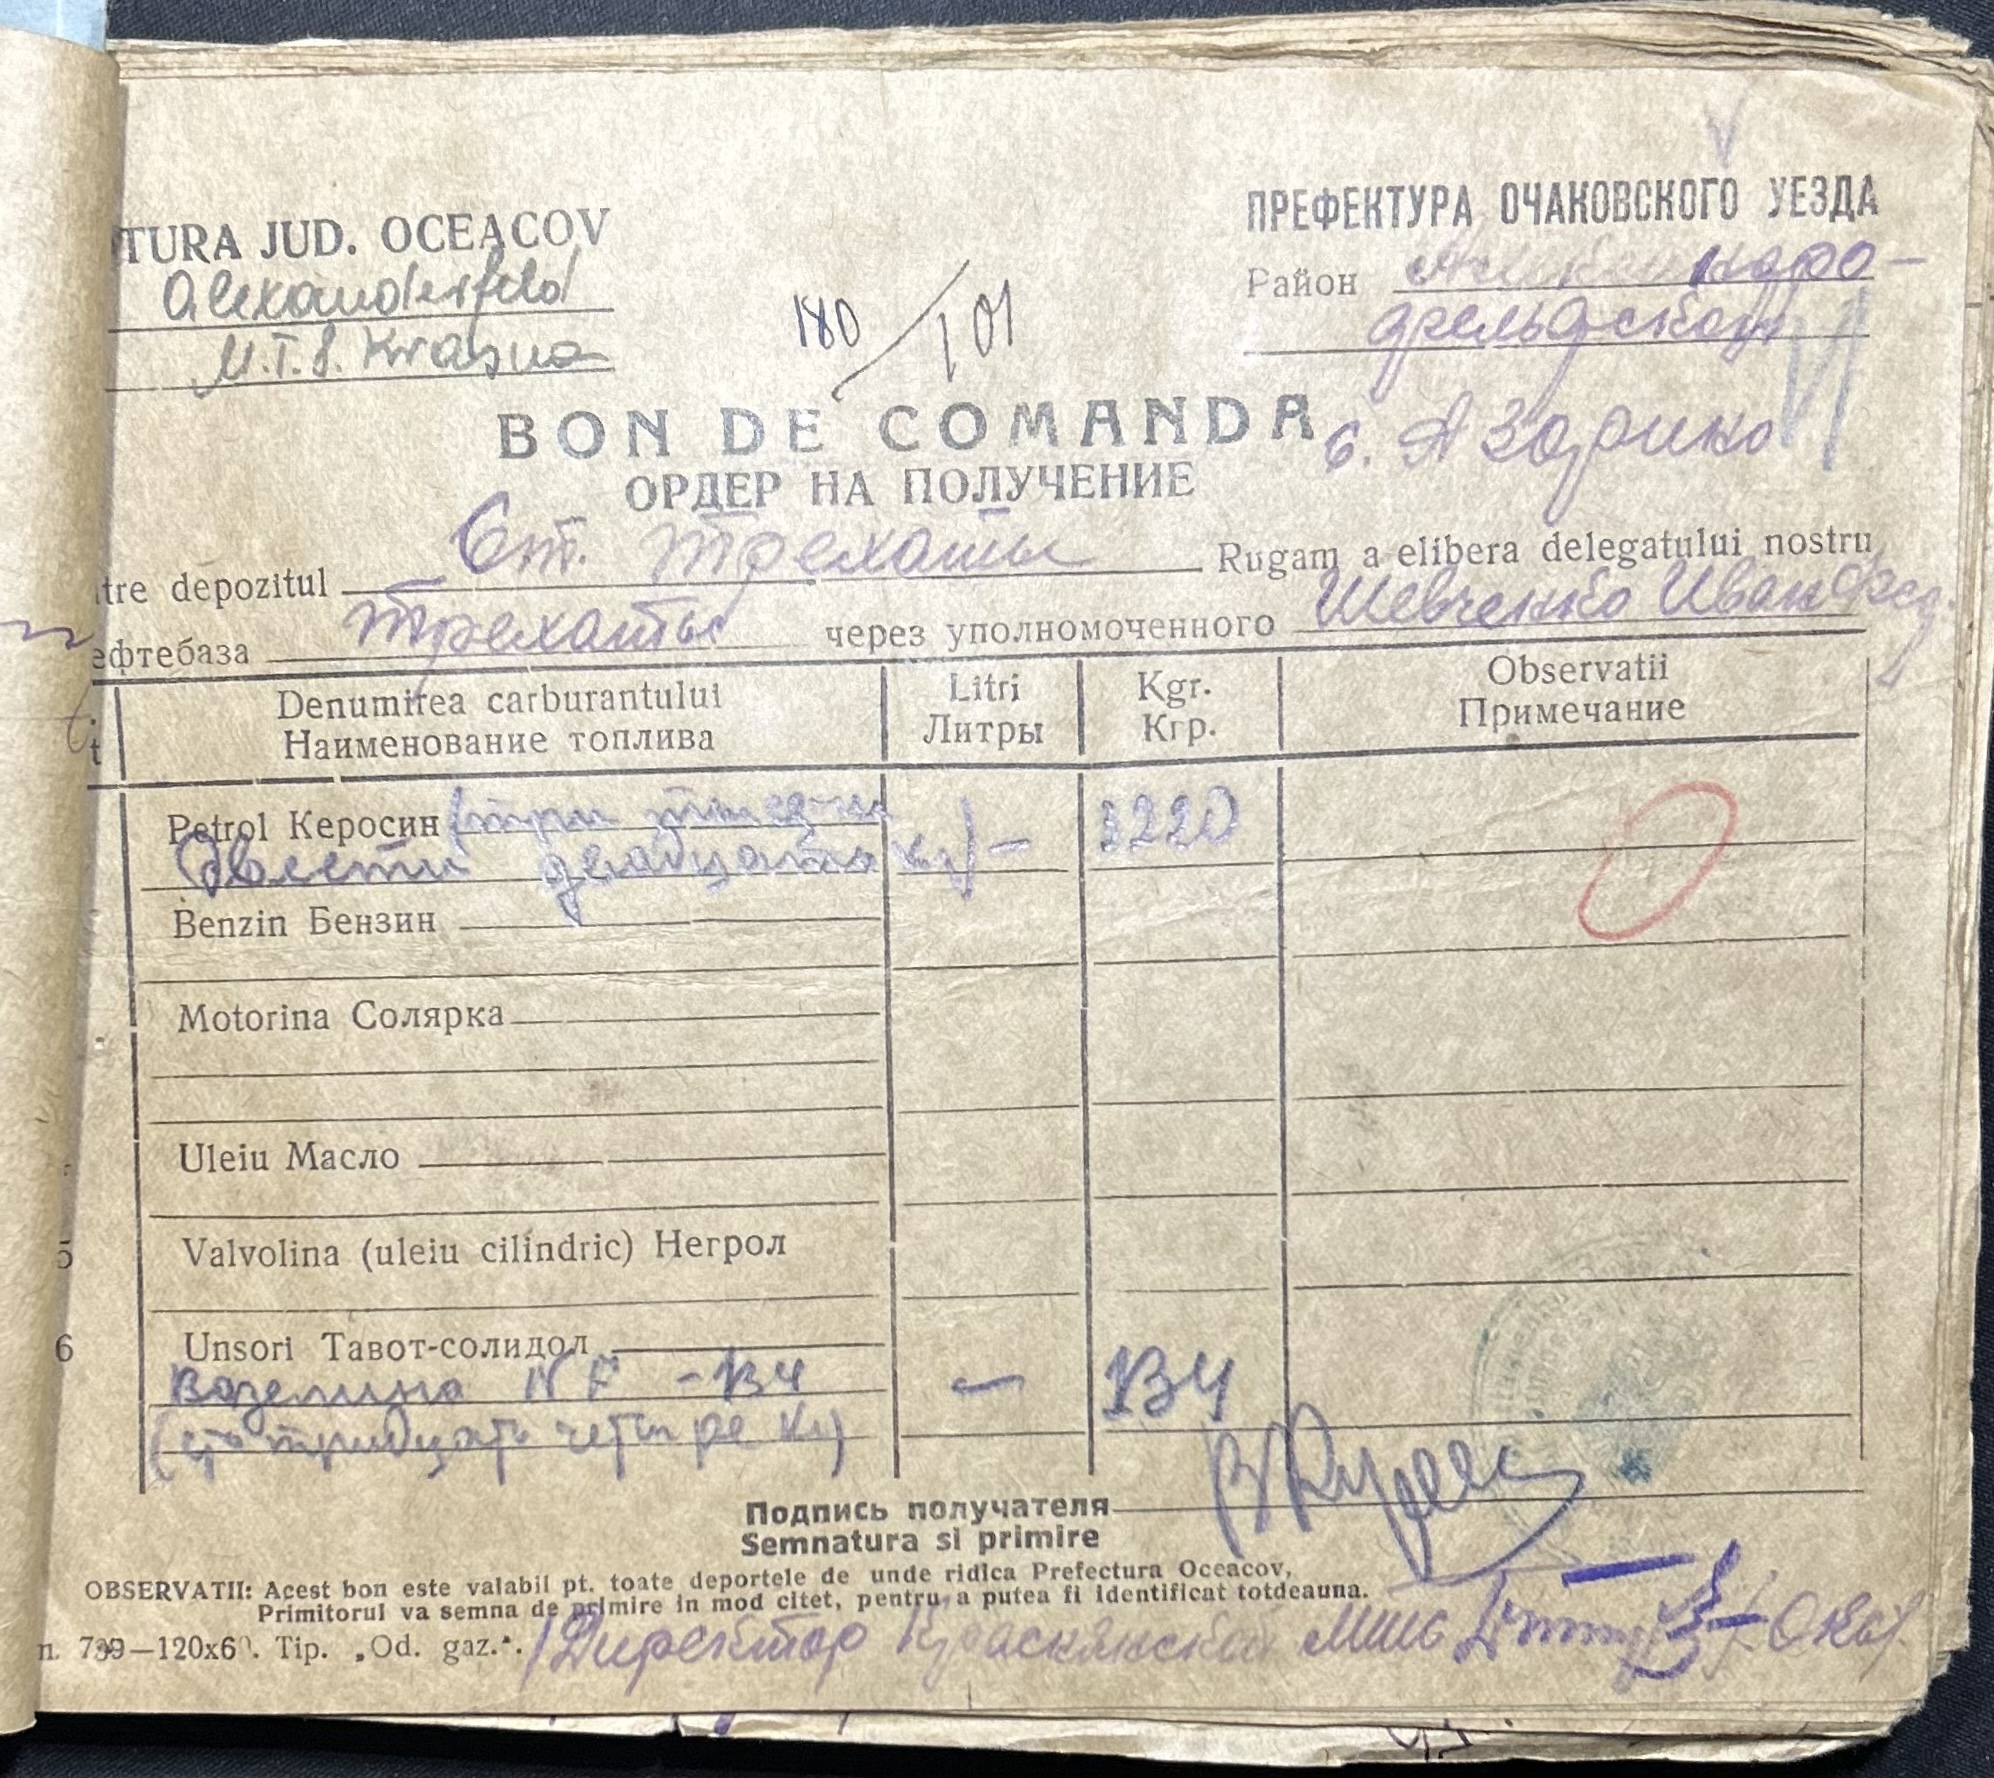 TURA JUD. OCEACOV
ПРЕФЕКТУРА ОЧАКОВСКОГО УЕЗДА
Alexanderfeld
Район
M.T.S. Krasna
фельдский
180/101
BON DE COMANDA
ОРДЕР НА ПОЛУЧЕНИЕ
tre depozitul Ст. Трехаты Rugam a elibera delegatului nostru
ефтебаза Трехаты через уполномоченного Шевченко Иван Фед.
Denumirea carburantului Litri Kgr. Observatii
Наименование топлива Литры Кгр. Примечание
Petrol Керосин (три тысячи 3220
двести двадцать кг) —
Benzin Бензин
Motorina Солярка
Uleiu Масло
5 Valvolina (uleiu cilindric) Негрол
6 Unsori Тавот-солидол
134 — 134
(сто тридцать четыре кг)
Подпись получателя
Semnatura si primire
OBSERVATII: Acest bon este valabil pt. toate deportele de unde ridica Prefectura Oceacov,
Primitorul va semna de primire in mod citet, pentru a putea fi identificat totdeauna.
n. 739—120x60. Tip. „Od. gaz.".
Директор Краснянской мтс